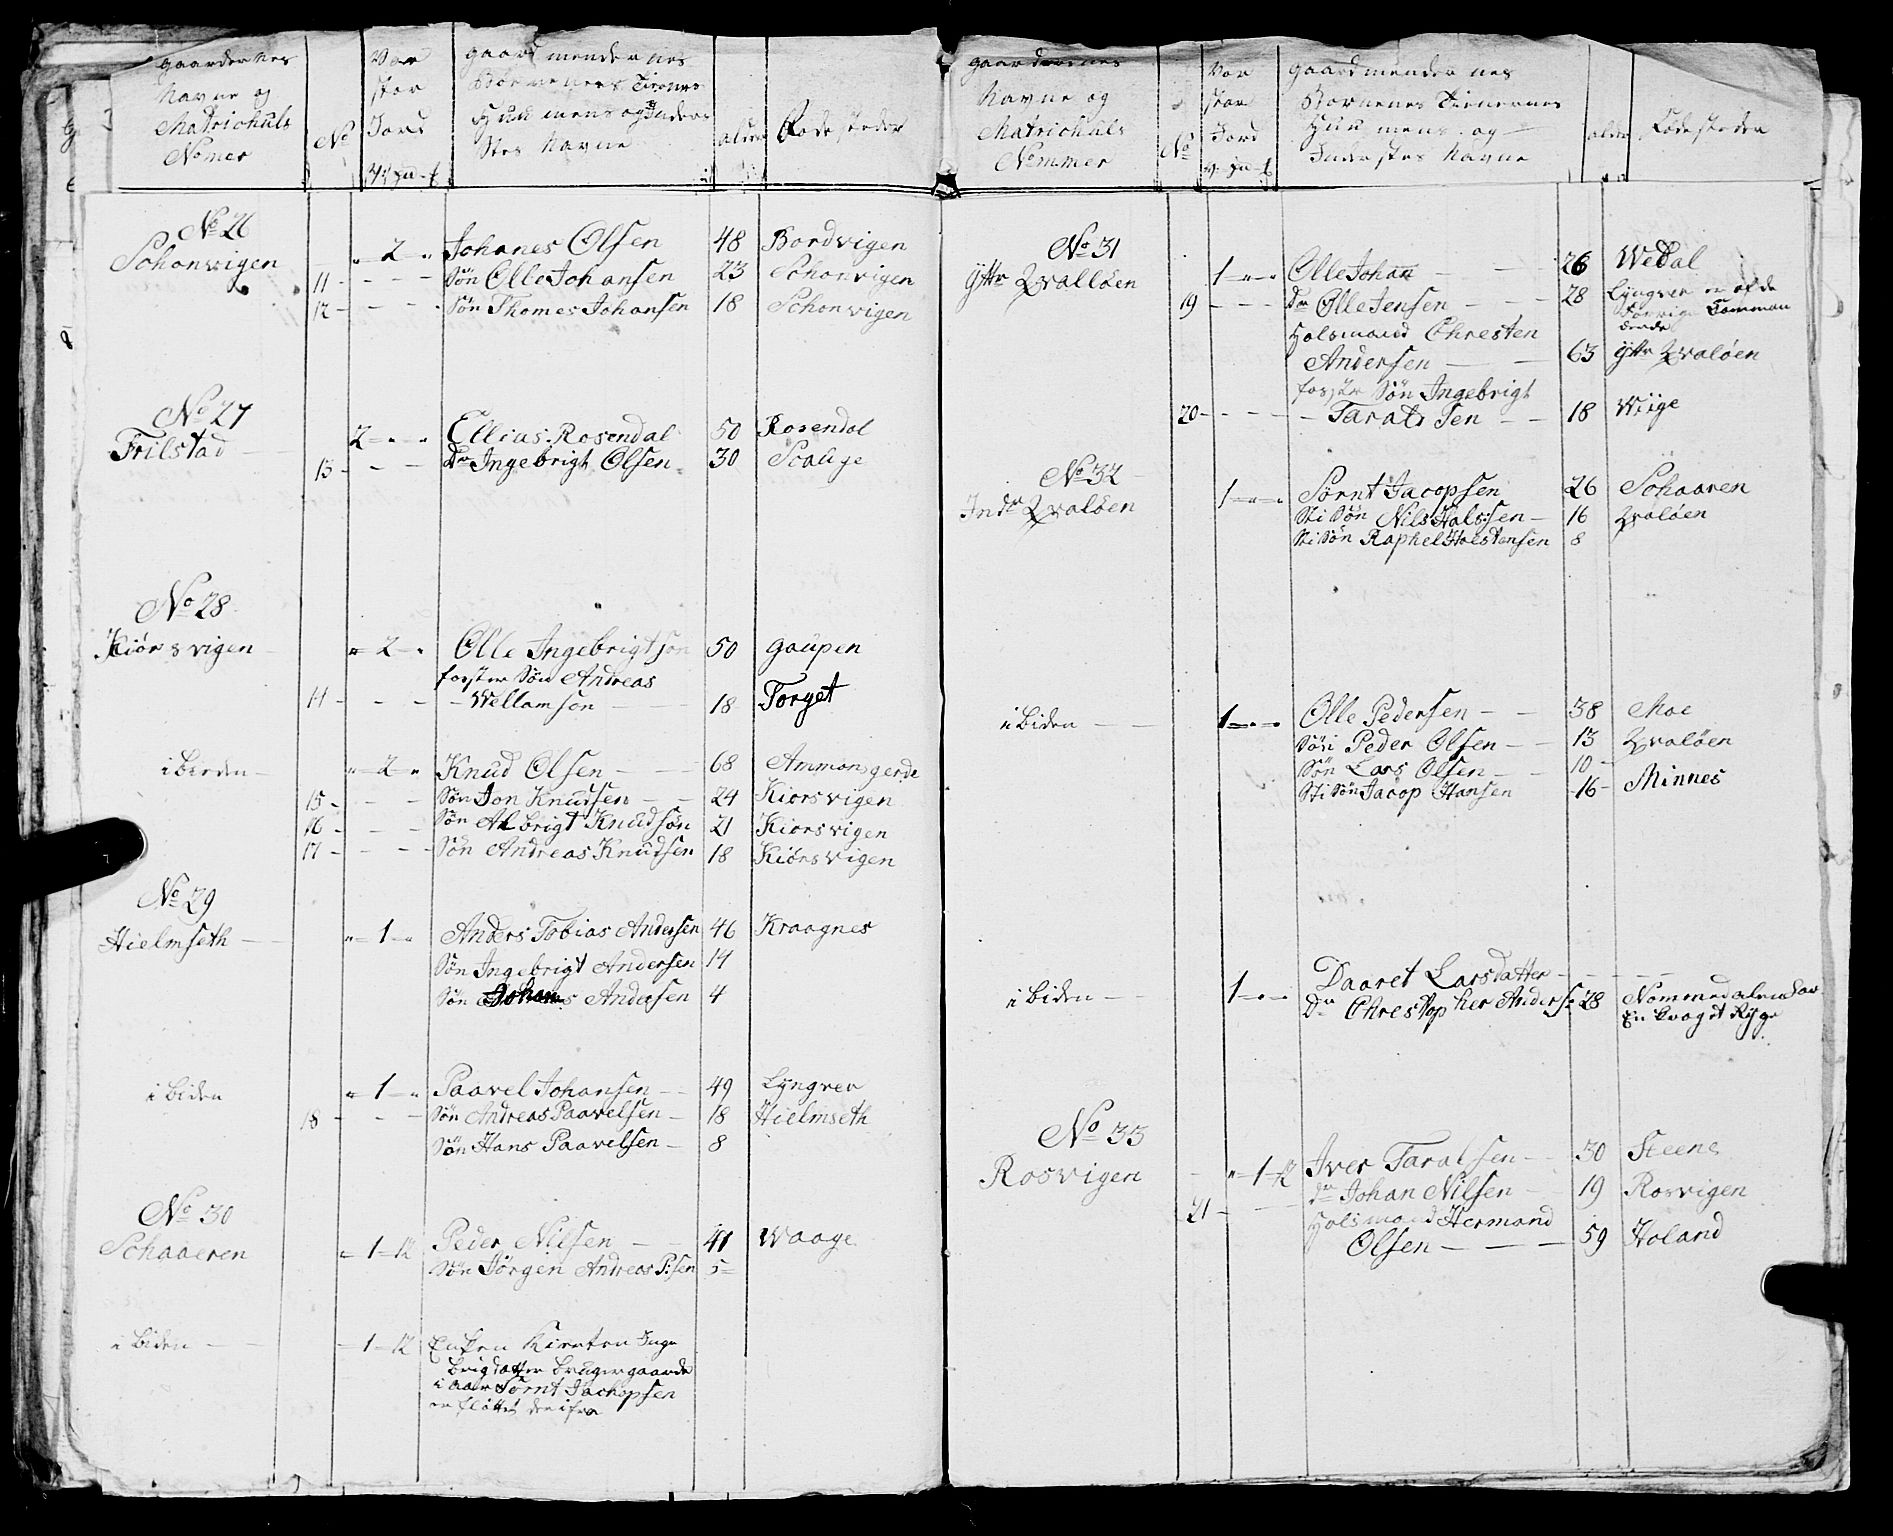 gaardernes
Navne og
Matrichuls
Nomer
No
Vor
stor
Jord
V: pd - £
gaardmendernes
Børnenes Tienernes
Huusmens og Inders
stes Navne
alder
Føde steder
No 26
Schonvigen
" 2 " Johanes Olsen 48 Bordvigen
11 - - - Søn Olle Johansen 23 Schonvigen
12 - - - Søn Thomes Johansen 18 Schonvigen
No 27
Frilstad
2 - " - " Ellias Rosendal 50 Rosendal
13 - - - Dr Ingebrigt Olsen 30 Scauge
No 28
Kiørsvigen
" 2 - " Olle Ingebrigtsøn 50 gaupen
foster Søn Andreas
14 - - - - Wellamsøn - 18 Torget
i biden -
" 2 - " Knud Olsen - - 68 Ammonsgerde
15 - - - Søn Jon Knudsen - 24 Kiorsvigen
16 - - - Søn Albrigt Knudsøn 21 Kiorsvigen
17 - - - Søn Andreas Knudsen 18 Kiørsvigen
No 29
Hielmseth -
" 1 - " Anders Tobias Andersen 46 Kraagnes
Søn Ingebrigt Andersen 14
Søn Johanes Andersen 4
i biden
" 1 - " Paavel Johansen - - 49 Lyngver
18 - - - Søn Andreas Paavelsen - 18 Hielmseth
Søn Hans Paavelsen - 8
No 30
Schaaeren
" 1 - 12 Peder Nilsen - 41 Waage
Søn Jørgen Andreas P:sen 5
i biden - -
- 1 - 12 Enken Kirsten Inge
brigdatter bruger gaarde
i aar Sørnt Jachopsen
er fløttet derifra
gaardernes
Navne og
Matrichuls
Nommer
No
Vor
stor
Jord
v. pd - £
gaardmendernes
Børnenes Tienernes
Huusmens og
Inderstes Navne
alder
Føde steder
No 31
Yttr Qvalløen
1 - " - " Olle Johan - - 26 Wedal
19 - - - Dr Olle Jensen - - 28 Lyngver er af de
forrige Comman
derede
Holsmand Chresten
Andersen - - 63 Yttr Qvaløen
foster Søn Ingebrigt
20 - - - - Taralsen - 18 Wiige
No 32
Indr Qvaløen
1 - " - " Sørnt Jacopsen 26 Schaaren
Sti Søn Nils Hals:sen - 16 Qvaløen
Sti Søn Raphel Holstensen 8
i biden - -
1 - " - " Olle Pedersen - - 38 Moe
Søn Peder Olsen - - 13 Qvaløen
Søn Lars Olsen - - 10 -
Sti Søn Jacop Hansen - 16 - Minnes
i biden - -
1 - " - " Daaret Larsdatter - - - -
Dr Chrestopher Anders: 28 Nommedalen
En svaget Ryge
No 33
Rosvigen
" - 1 - 12 Iver Taralsen - 30 Steene
21 - - - dr Johan Nilsen - 19 Rosvigen
Holsmand Hermand
Olsen - - - 59 Holand